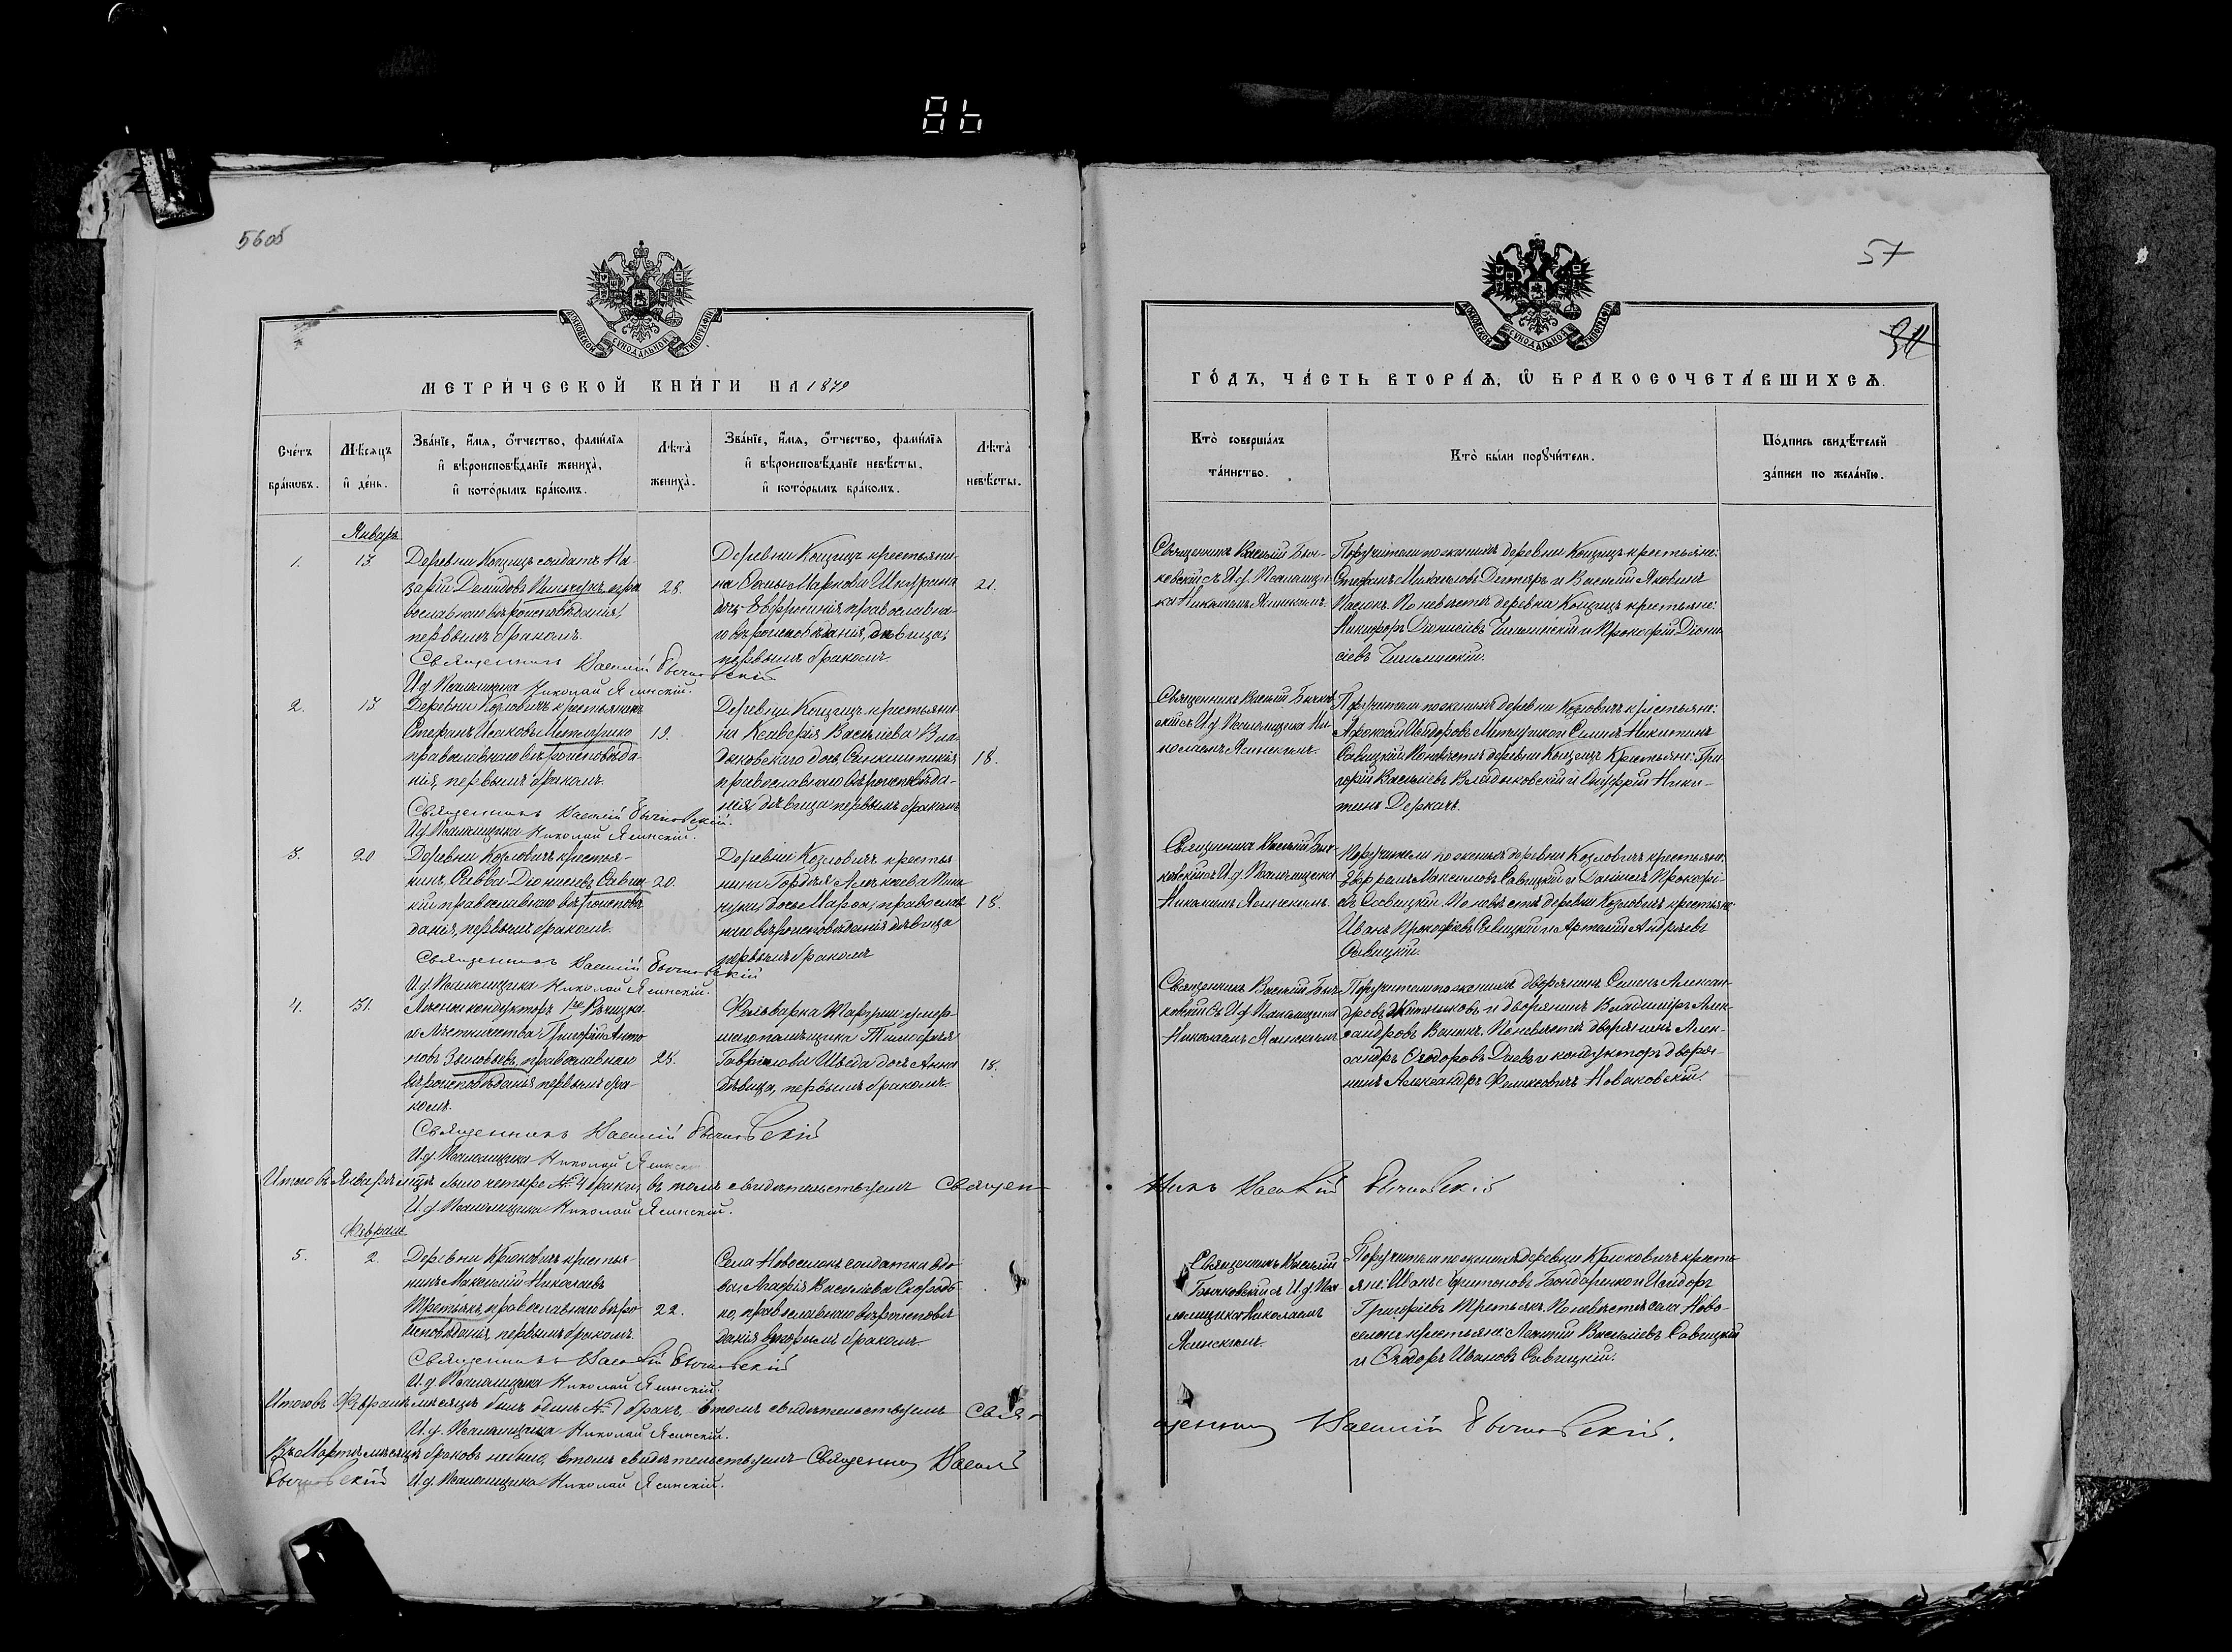 86
56об
57
34
МОСКОВСКОЙ СѴНОДАЛЬНОЙ ТИПОГРАФІИ
МОСКОВСКОЙ СѴНОДАЛЬНОЙ ТИПОГРАФІИ
МЕТРИ́ЧЕСКОЙ КНИ́ГИ НА 1879
ГО́ДЪ, ЧА́СТЬ ВТОРА́Ѧ, Ѽ БРАКОСОЧЕТА́ВШИХСѦ.
Сче́тъ
бра́кѡвъ.
Мѣ́сяцъ
и҆ де́нь.
Зва́нїе, и҆́мѧ, ѻ҆́тчество, фами́лїѧ
и҆ вѣроисповѣ́данїе жениха̀,
и҆ кото́рымъ бра́комъ.
Лѣ́та
жениха̀.
Зва́нїе, и҆́мѧ, ѻ҆́тчество, фами́лїѧ
и҆ вѣроисповѣ́данїе невѣ́сты,
и҆ кото́рымъ бра́комъ.
Лѣ́та
невѣ́сты.
Кто̀ соверша́лъ
та́инство.
Кто̀ бы́ли порꙋчи́тели.
По́дпись свидѣ́телей
за́писи по жела́нїю.
Январь
1.
13
Деревни Кощицъ солдатъ На-
зарій Демидовъ пра
вославнаго вѣроисповѣданія,
первымъ бракомъ.
28.
Деревни Кощицъ крестьяни-
на Ѳомы Маркова
дочь Евфросинія православна-
го вѣроисповѣданія, дѣвица,
первымъ бракомъ.
21.
Священникъ Василій Быч-
ковскій съ И.д. Псаломщи
ка Николаемъ Ясинскимъ.
Поручители по женихѣ деревни Кощицъ крестьяне:
Стефанъ Михайловъ Дегтярь и Василій Яковлевъ
По невѣстѣ деревни Кощицъ крестьяне:
Никифоръ Діонисіевъ и Прокофій Діони
сіевъ
Священникъ Василій Бычковскій
И.д. Псаломщика Николай Ясинскій.
2.
13
Деревни Козловичъ крестьянинъ
Стефанъ Исаковъ Метельушко
православнаго вѣроисповѣда-
нія, первымъ бракомъ.
19.
Деревни Кощицъ крестьяни
на Ксаверія Васильева Вла-
дыковскаго дочь Синклитикія
православнаго вѣроисповѣда-
нія, дѣвица первымъ бракомъ
18.
Священникъ Василій Бычков
скій съ И.д. Псаломщика Ни-
колаемъ Ясинскимъ.
Поручители по женихѣ деревни Козловичъ крестьяне:
Исидоровъ и Никитинъ
Савицкій. По невѣстѣ деревни Кощицъ крестьяне: Гри-
горій Васильевъ Владыковскій и Онуфрій Ники-
тинъ Деркачъ.
Священникъ Василій Бычковскій.
И.д. Псаломщика Николай Ясинскій.
3.
20
Деревни Козловичъ крестья-
нинъ, Савва Діонисіевъ Савиц
кій православнаго вѣроисповѣ
данія, первымъ бракомъ.
20.
Деревни Козловичъ крестья
нина Гордѣя Алексѣева
дочь Марѳа, православ
наго вѣроисповѣданія дѣвица
первымъ бракомъ
18.
Священникъ Василій Быч-
ковскій съ И.д. Псаломщика
Николаемъ Ясинскимъ.
Поручители по женихѣ деревни Козловичъ крестьяне:
Ефремъ Максимовъ Савицкій и Даніилъ Прокофі-
евъ Савицкій. По невѣстѣ деревни Козловичъ крестьяне:
Иванъ Прокофіевъ Савицкій и Артемій Андреевъ
Савицкій.
Священникъ Василій Бычковскій
И.д. Псаломщика Николай Ясинскій.
4.
31.
Лѣсной кондукторъ 1го Рѣчицка
го Лѣсничества Григорій Анто
новъ православнаго
вѣроисповѣданія первымъ бра-
комъ.
28.
Фольварка умер-
шаго помѣщика Тимоѳея
Гаврілова Шведа дочь Анна
дѣвица, первымъ бракомъ.
18.
Священникъ Василій Быч-
ковскій съ И.д. Псаломщика
Николаемъ Ясинскимъ
Поручители по женихѣ дворянинъ Семенъ Алексан-
дровъ и дворянинъ Владиміръ Алек-
сандровъ По невѣстѣ дворянинъ Алек-
сандръ Ѳеодоровъ и кондукторъ дворя-
нинъ Александръ Феликсовичъ Новаковскій.
Священникъ Василій Бычковскій
И.д. Псаломщика Николай Ясинскій
Итого въ Январѣ м-цѣ было четыре № 4 брака, въ томъ свидѣтельствуемъ Священ-
никъ Василій Бычковскій
И.д. Псаломщика Николай Ясинскій.
Февраль
5.
2.
Деревни Крюковичъ крестья-
нинъ Макс Николаевъ
Третьякъ, православнаго вѣро
исповѣданія, первымъ бракомъ.
22.
Села Новоселокъ солдатка вдо
ва, Агафія Васильева Скоробо
ко, православнаго вѣроисповѣ
данія вторымъ бракомъ.
Священникъ Василій
Бычковскій съ И.д. Пса
ломщика Николаемъ
Ясинскимъ.
Поручители по женихѣ деревни Крюковичъ кресть-
яне: Иванъ Харитоновъ Бондаренко и Исидоръ
Григоріевъ Третьякъ. По невѣстѣ села Ново-
селокъ крестьяне: Васильевъ Савицкій
и Ѳеодоръ Ивановъ Савицкій.
Священникъ Василій Бычковскій
И.д. Псаломщика Николай Ясинскій.
Итого въ Февралѣ мѣсяцѣ былъ одинъ № 1 бракъ, въ томъ свидѣтельствуемъ Свя-
щенникъ Василій Бычковскій.
И.д. Псаломщика Николай Ясинскій.
Въ Мартѣ мѣсяцѣ браковъ небыло, въ томъ свидѣтельствуемъ Священникъ Василій
Бычковскій И.д. Псаломщика Николай Ясинскій.